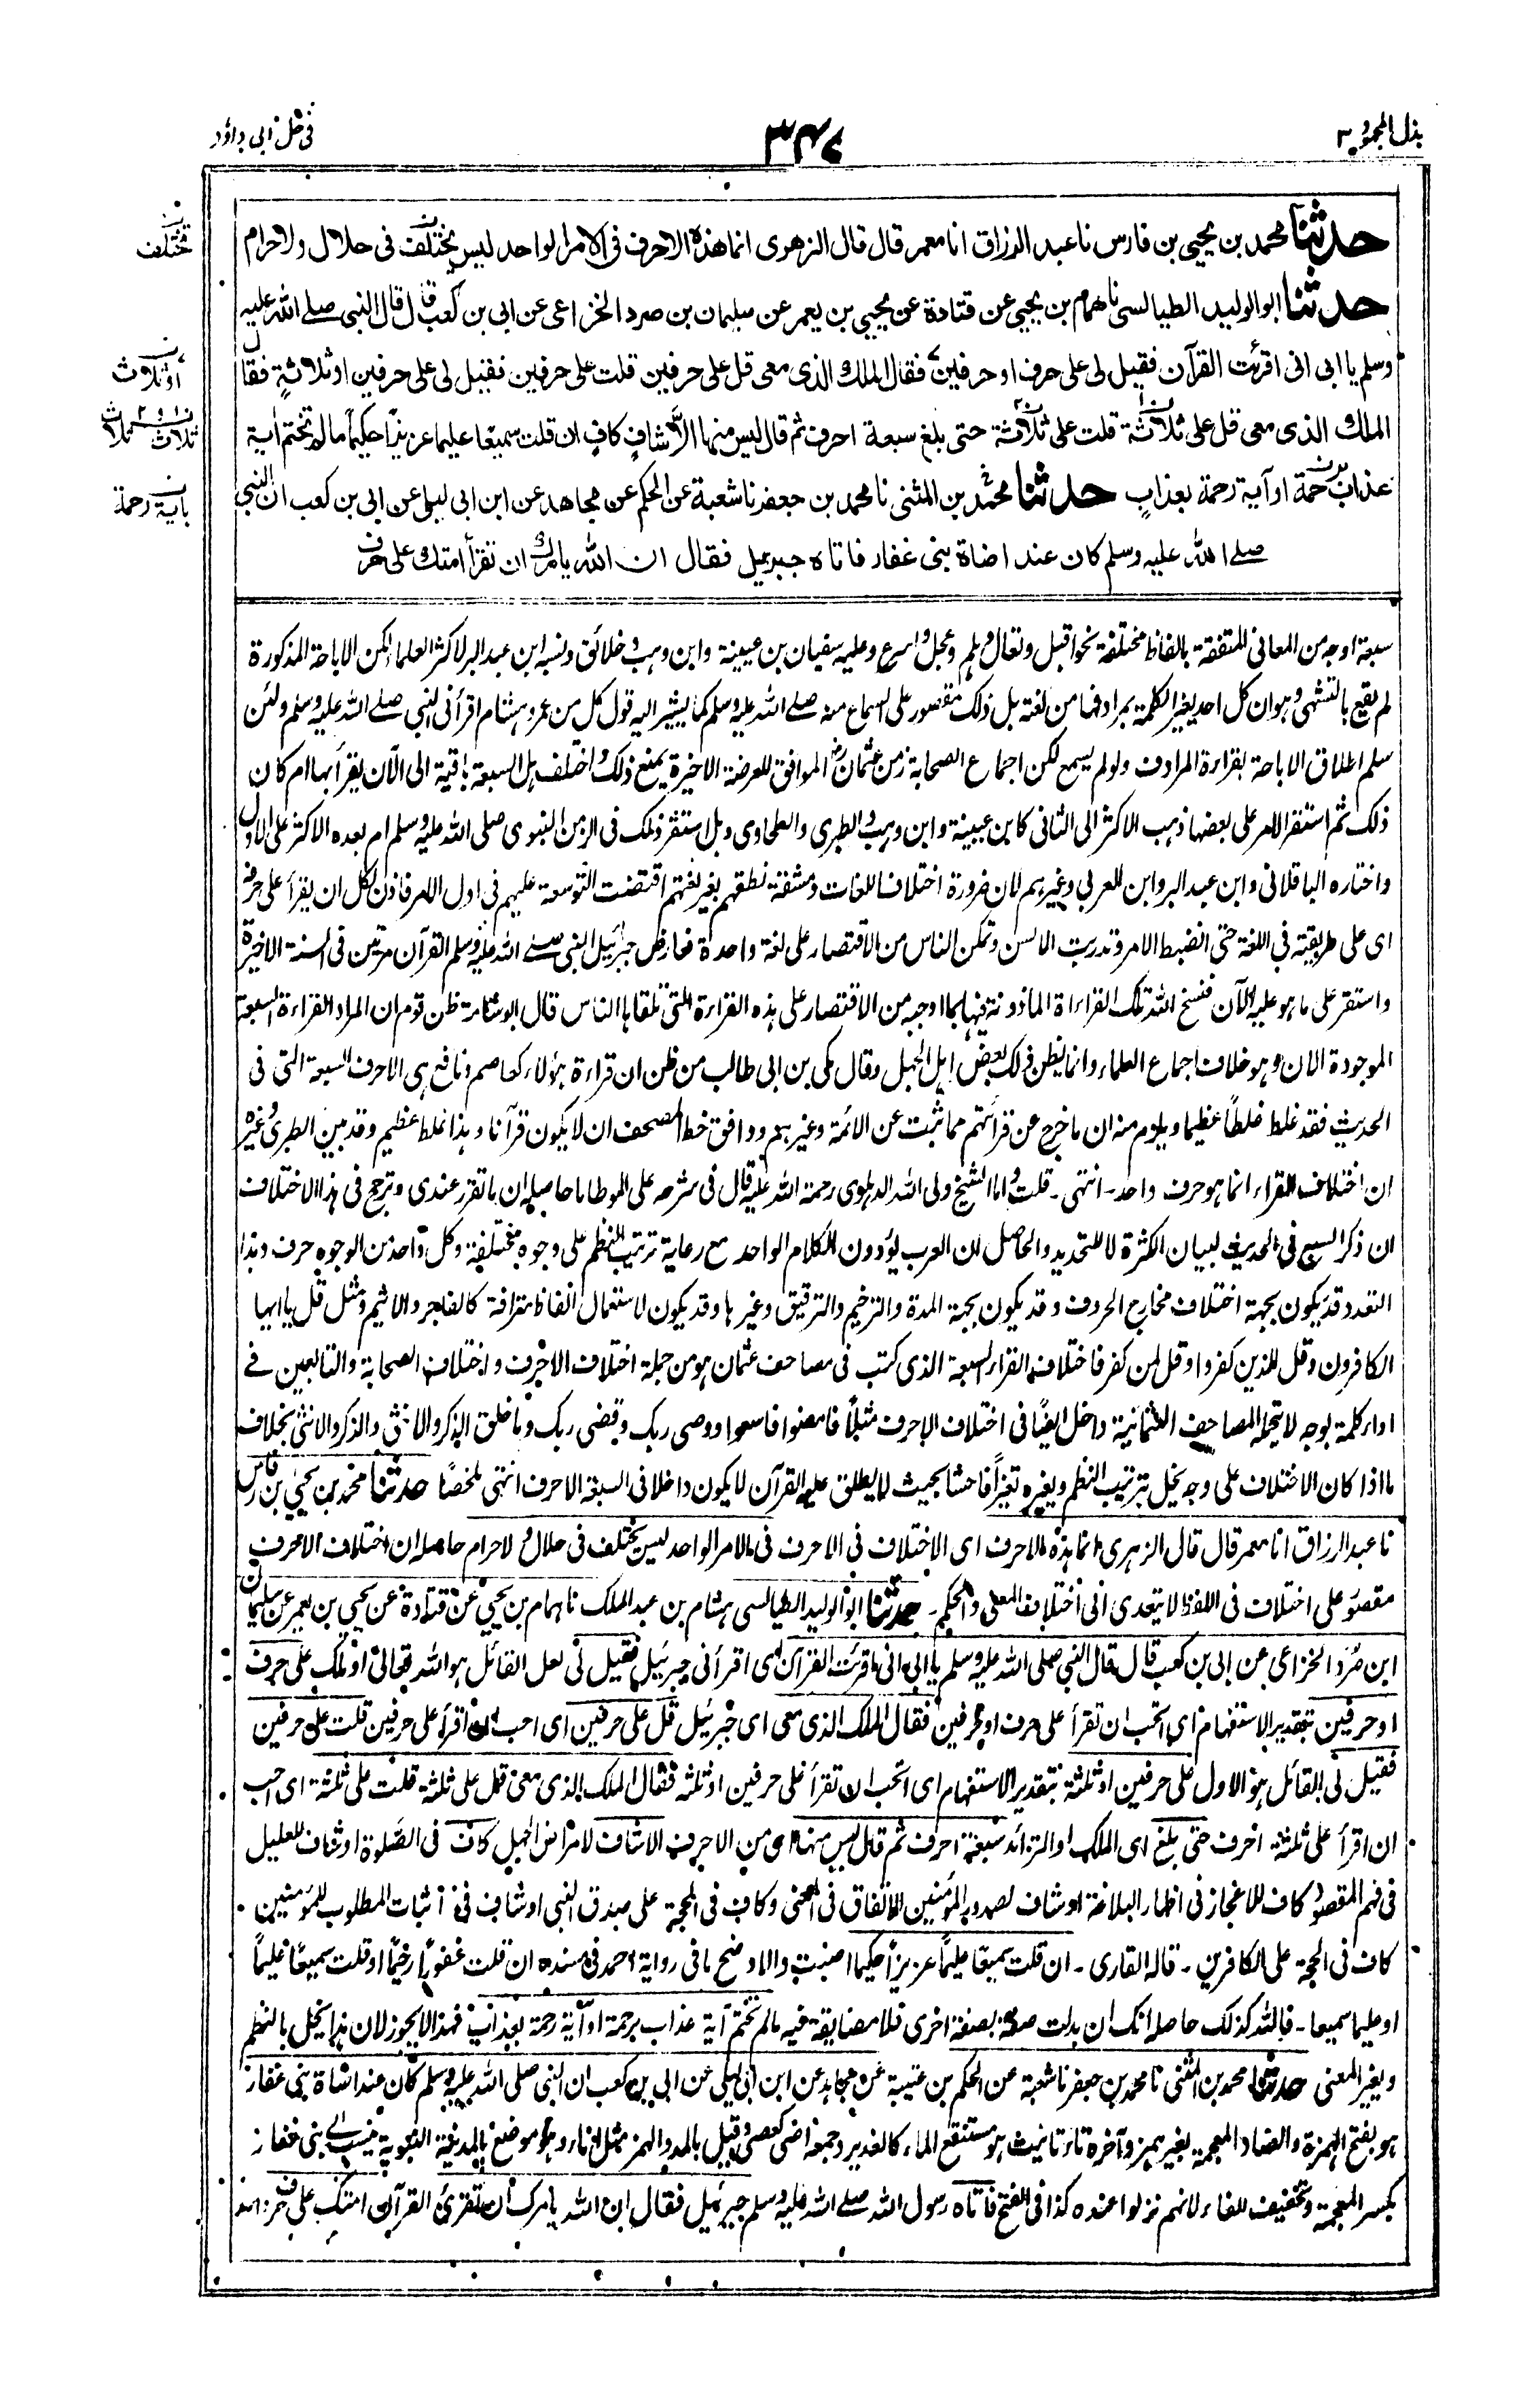 بذل المجهود ٣
٣٤٧
في حل ابى داؤد
حدثنا محمد بن يحيى بن فارس نا عبد الرزاق انا معمر قال قال الزهرى انما هذه الاحرف فى الامر الواحد ليس يختلف فى حلال ولا حرام
مختلف
حدثنا ابو الوليد الطيالسى نا همام بن يحيى عن قتادة عن يحيى بن يعمر عن سليمان بن صرد الخزاعى عن ابى بن كعب قال قال النبى صلے الله عليه
وسلم يا ابى انى اقرئت القرآن فقيل لى على حرف او حرفين فقال الملك الذى معى قل على حرفين قلت على حرفين فقيل لى على حرفين او ثلاثة فقال
او ثلاث
الملك الذى معى قل على ثلاثة قلت على ثلاثة حتى بلغ سبعة احرف ثم قال ليس منها الا شاف كاف ان قلت سميعا عليما عزيزا حكيما ما لم تختم اية
ثلاث ثلاث
عذاب برحمة او آية رحمة بعذاب حدثنا محمد بن المثنى نا محمد بن جعفر نا شعبة عن الحكم عن مجاهد عن ابن ابى ليلى عن ابى بن كعب ان النبى
باية رحمة
صلے الله عليه وسلم كان عند اضاة بنى غفار فاتاه جبريل فقال ان الله يأمرك ان تقرأ امتك على حرف
سبعة اوجه من المعانى المتفقة بالفاظ مختلفة نحو اقبل وتعال وہلم وعجل واسرع وعليه سفيان بن عيينة وابن وہب وخلائق ونسبه ابن عبد البر لاكثر العلماء لكن الاباحة المذكورة
لم يقع بالتشہى وہو ان كل احد يغير الكلمة بمرادفہا من لغته بل ذلك مقصور على السماع منه صلے الله عليه وسلم كما يشير اليه قول كل من عمر وہشام اقرأنى النبى صلے الله عليه وسلم ولئن
سلم اطلاق الاباحة بقراءة المرادف ولو لم يسمع لكن اجماع الصحابة زمن عثمان الموافق للعرضة الاخيرة يمنع ذلك واختلف ہل السبعة باقية الى الآن يقرأ بہا ام كان
ذلك ثم استقر الامر على بعضہا ذہب الاكثر الى الثانى كابن عيينة وابن وہب والطبرى والطحاوى وہل استقر ذلك فى الزمن النبوى صلى الله عليه وسلم ام بعده الاكثر على الاول
واختاره الباقلانى وابن عبد البر وابن العربى وغيرہم لان ضرورة اختلاف اللغات ومشقة نطقہم بغير لغتہم اقتضت التوسعة عليہم فى اول الامر فاذن لكل ان يقرأ على حرفه
اى على طريقته فى اللغة حتى انضبط الامر وتدربت الالسن وتمكن الناس من الاقتصار على لغة واحدة فعارض جبرئيل النبى صلے الله عليه وسلم القرآن مرتين فى السنة الاخيرة
واستقر على ما ہو عليه الآن فنسخ الله تلك القراءة الماذونة فيہا بما اوجبه من الاقتصار على ہذه القراءة التى تلقاہا الناس قال ابو شامة ظن قوم ان المراد القراءة السبعة
الموجودة الان وہو خلاف اجماع العلماء وانما يظن ذلك بعض اہل الجہل وقال مكى بن ابى طالب من ظن ان قراءة ہؤلاء كعاصم ونافع ہى الاحرف السبعة التى فى
الحديث فقد غلط غلطا عظيما ويلزم منه ان ما خرج عن قرأتہم مما ثبت عن الائمة وغيرہم ووافق خط المصحف ان لا يكون قرآنا وہذا غلط عظيم وقد بين الطبرى وغيره
ان اختلاف القراء انما ہو حرف واحد۔ انتہى۔ قلت واما الشيخ ولى الله الدہلوى رحمة الله عليه قال فى شرحه على الموطا ما حاصله ان ما تقرر عندى وترجح فى ہذا الاختلاف
ان ذكر السبع فى الحديث لبيان الكثرة لا للتحديد والحاصل ان العرب يؤدون الكلام الواحد مع رعاية ترتيب النظم على وجوه مختلفة وكل واحد من الوجوه حرف وہذا
التعدد قد يكون بجہة اختلاف مخارج الحروف وقد يكون بجہة المدة والترخيم والترقيق وغيرہا وقد يكون لاستعمال الفاظ مترادفة كالفاجر والاثيم ومثل قل يا ايہا
الكافرون وقل للذين كفروا وقل لمن كفر فاختلاف القراء السبعة الذى كتب فى مصاحف عثمان ہو من جملة اختلاف الاحرف واختلاف الصحابة والتابعين فے
اداء كلمة بوجه لا يتحمله المصاحف العثمانية داخل ايضا فى اختلاف الاحرف مثلا فامضوا فاسعوا ووصى ربك وقضى ربك وما خلق الذكر والانثى والذكر والانثى بخلاف
ما اذا كان الاختلاف على وجه يخل بترتيب النظم ويغيره تغيرا فاحشا بحيث لا يطلق عليه القرآن لا يكون داخلا فى السبعة الاحرف انتہى ملخصا حدثنا محمد بن يحيى بن فارس
نا عبد الرزاق انا معمر قال قال الزہرى انما ہذه الاحرف اى الاختلاف فى الاحرف فى الامر الواحد ليس يختلف فى حلال ولا حرام حاصله ان اختلاف الاحرف
مقصور على اختلاف فى اللفظ لا يتعدى الى اختلاف المعنى والحكم۔ حدثنا ابو الوليد الطيالسى ہشام بن عبد الملك نا ہمام بن يحيى عن قتادة عن يحيى بن يعمر عن سليمان
ابن صرد الخزاعى عن ابى بن كعب قال قال النبى صلى الله عليه وسلم يا ابى انى اقرئت القرآن اى اقرأنى جبرئيل فقيل لى لعل القائل ہو الله تعالى او ملك على حرف
او حرفين بتقدير الاستفہام اى اتحب ان تقرأ على حرف او حرفين فقال الملك الذى معى اى جبرئيل قل على حرفين اى احب ان اقرأ على حرفين قلت على حرفين
فقيل لى القائل ہو الاول على حرفين او ثلثة بتقدير الاستفہام اى اتحب ان تقرأ على حرفين او ثلثه فقال الملك الذى معى قل على ثلثة قلت على ثلثة اى احب
ان اقرأ على ثلثة احرف حتى بلغ اى الملك او التزائد سبعة احرف ثم قال ليس منہا اى من الاحرف الا شاف لامراض الجہل كاف فى الصلوة او شاف للعليل
فى فہم المقصود كاف للاعجاز فى اظہار البلاغة او شاف لصدور المؤمنين للاتفاق فى المعنى وكاف فى الحجة على صدق النبى او شاف فى اثبات المطلوب للمؤمنين
كاف فى الحجة على الكافرين۔ قاله القارى۔ ان قلت سميعا عليما عزيزا حكيما اصبت والاوضح ما فى رواية احمد فى مسنده ان قلت غفورا رحيما او قلت سميعا عليما
او عليما سميعا۔ فالله كذلك حاصله انك ان بدلت صفة بصفة اخرى فلا مضايقة فيه ما لم تختم آية عذاب برحمة او آية رحمة بعذاب فہذا لا يجوز لان ہذا يخل بالنظم
ويغير المعنى حدثنا محمد بن المثنى نا محمد بن جعفر نا شعبة عن الحكم بن عتيبة عن مجاہد عن ابن ابى ليلى عن ابى بن كعب ان النبى صلى الله عليه وسلم كان عند اضاة بنى غفار
ہو بفتح الہمزة والضاد المعجمة بغير ہمز وآخره تاء تانيث ہو مستنقع الماء كالغدير وجمعه اضى كعصى وقيل بالمد والہمز مثل اناء وہو موضع بالمدينة النبوية ينسب الے بنى غفار
بكسر المعجمة وتخفيف الفاء لانہم نزلوا عنده كذا فى الفتح فاتاه رسول الله صلے الله عليه وسلم جبرئيل فقال ان الله يامرك ان تقرئ القرآن امتك على حرف